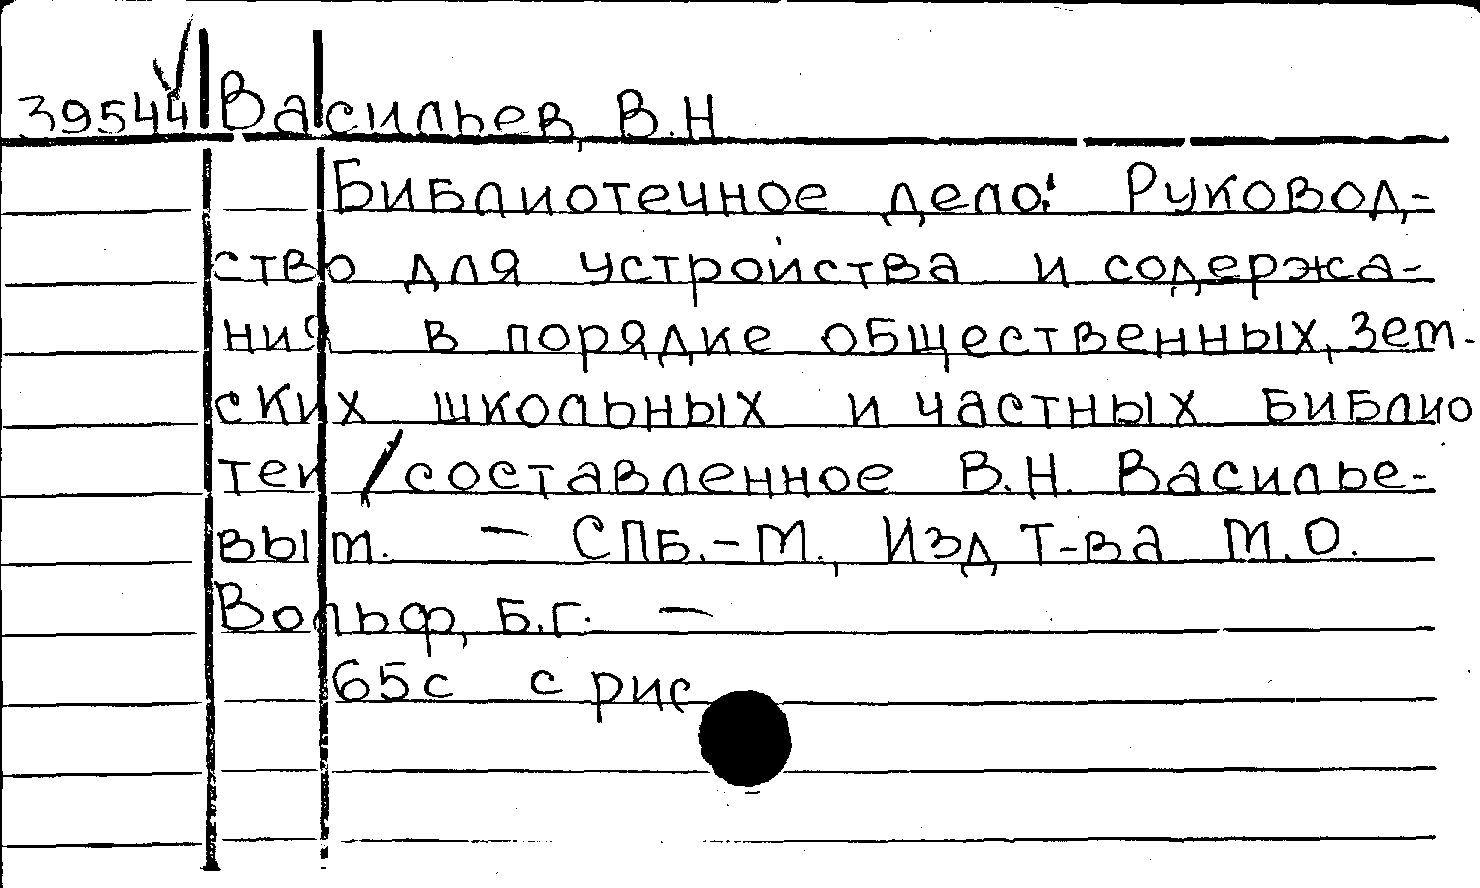 39544 Васильев, В.Н
Библиотечное дело: Руковод-
ство для устройства и содержа-
ния в порядке общественных, зем-
ских школьных и частных библио
тек /составленное В.Н. Василье-
вым. — СПБ.-М., Изд Т-ва М.О.
Вольф, Б.г. —
65с с рис